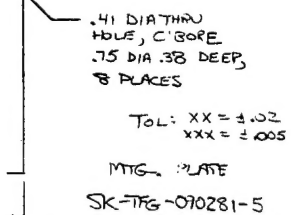 .41 DIA THRU
HOLE, C'BORE
.75 DIA .38 DEEP,
8 PLACES
TOL: XX = ±.02
XXX = ±.005
MTG. PLATE
SK-TFG-090281-5